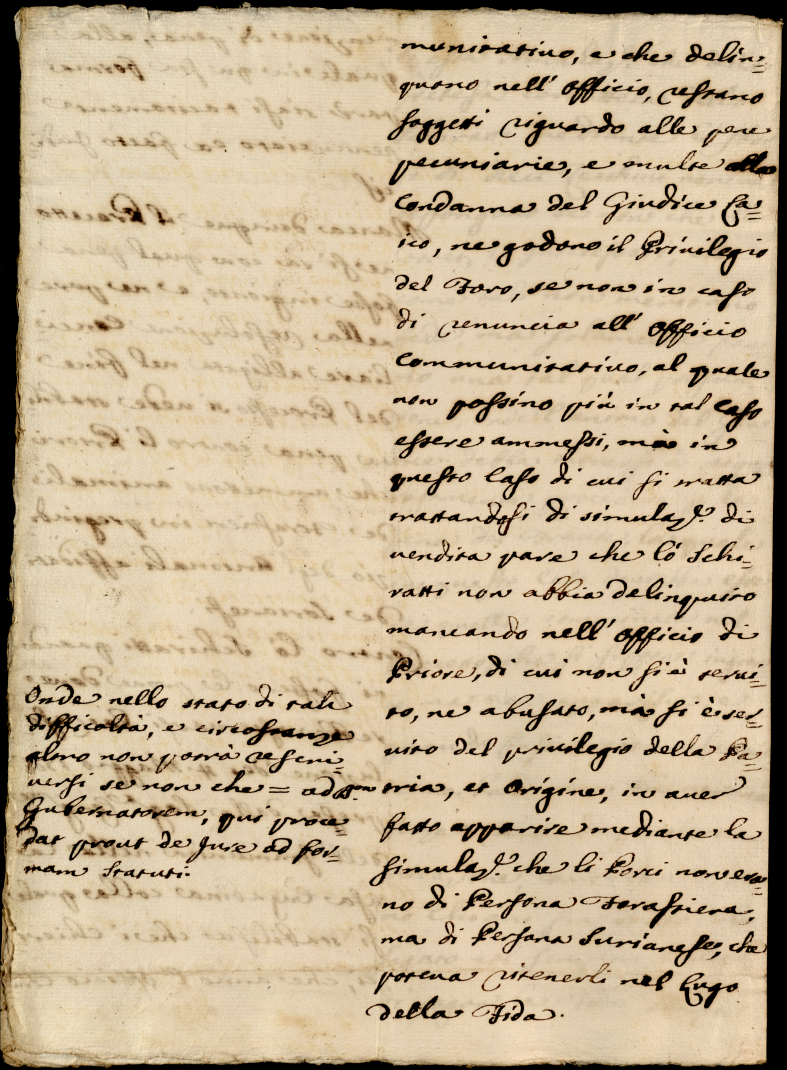 munitativo, e che delin=
quano nell' officio, restano
soggetti riguardo alle pene
pecuniarie, e multe alla
Condanna del Giudice La=
ico, ne godono il Privilegio
del Foro, se non in caso
di renuncia all' officio
Communitativo, al quale
non possino più in tal Caso
essere ammessi, mà in
questo Caso di cui si tratta
trattandosi di simulaz.e di
vendita pare che lo Schi=
ratti non abbia delinquito
mancando nell' officio di
Priore, di cui non si è servi=
to, ne abusato, mà si è ser=
vito del privilegio della Pa=
tria, et origine, in aver
fatto apparire mediante la
simulaz.e che li Porci non era=
no di Persona Forastiera,
ma di Persona Surianese, che
poteva ritenerli nel Lugo
della Fida.
Onde nello stato di tali
difficoltà, e circostanze
altro non potrà rescri=
versi se non che = ad
Gubernatorem, qui proce=
dat prout de Jure ad for=
mam Statuti.